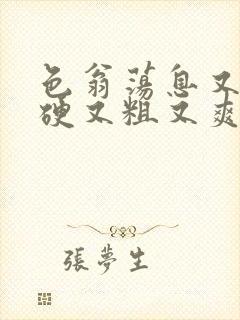 色翁荡息又
硬又粗又爽
張夢生